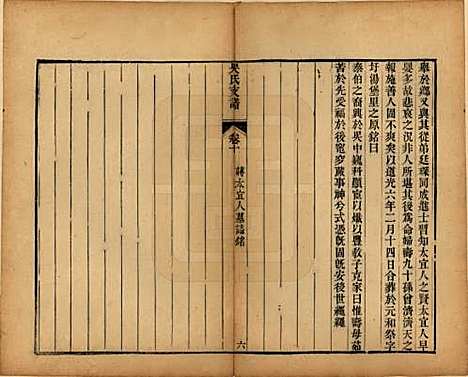 舉於鄉又與其從弟廷琛同成進士習知太宜人之賢太宜人早
嬰多故悲哀之況非人所堪其後為命婦壽九十孫曾濟濟天之
報施善人固不爽矣以道光六年二月十四日合葬於元和祭字
圩湯堡里之原銘曰
泰伯之後於吳中巍科顯宦以熾以豐教子克家曰惟壽母茹
苦於先受福於後窀穸歲事神兮式憑旣固旣安後世繩繩
吳氏支譜
卷十
蔣太宜人墓誌銘
六